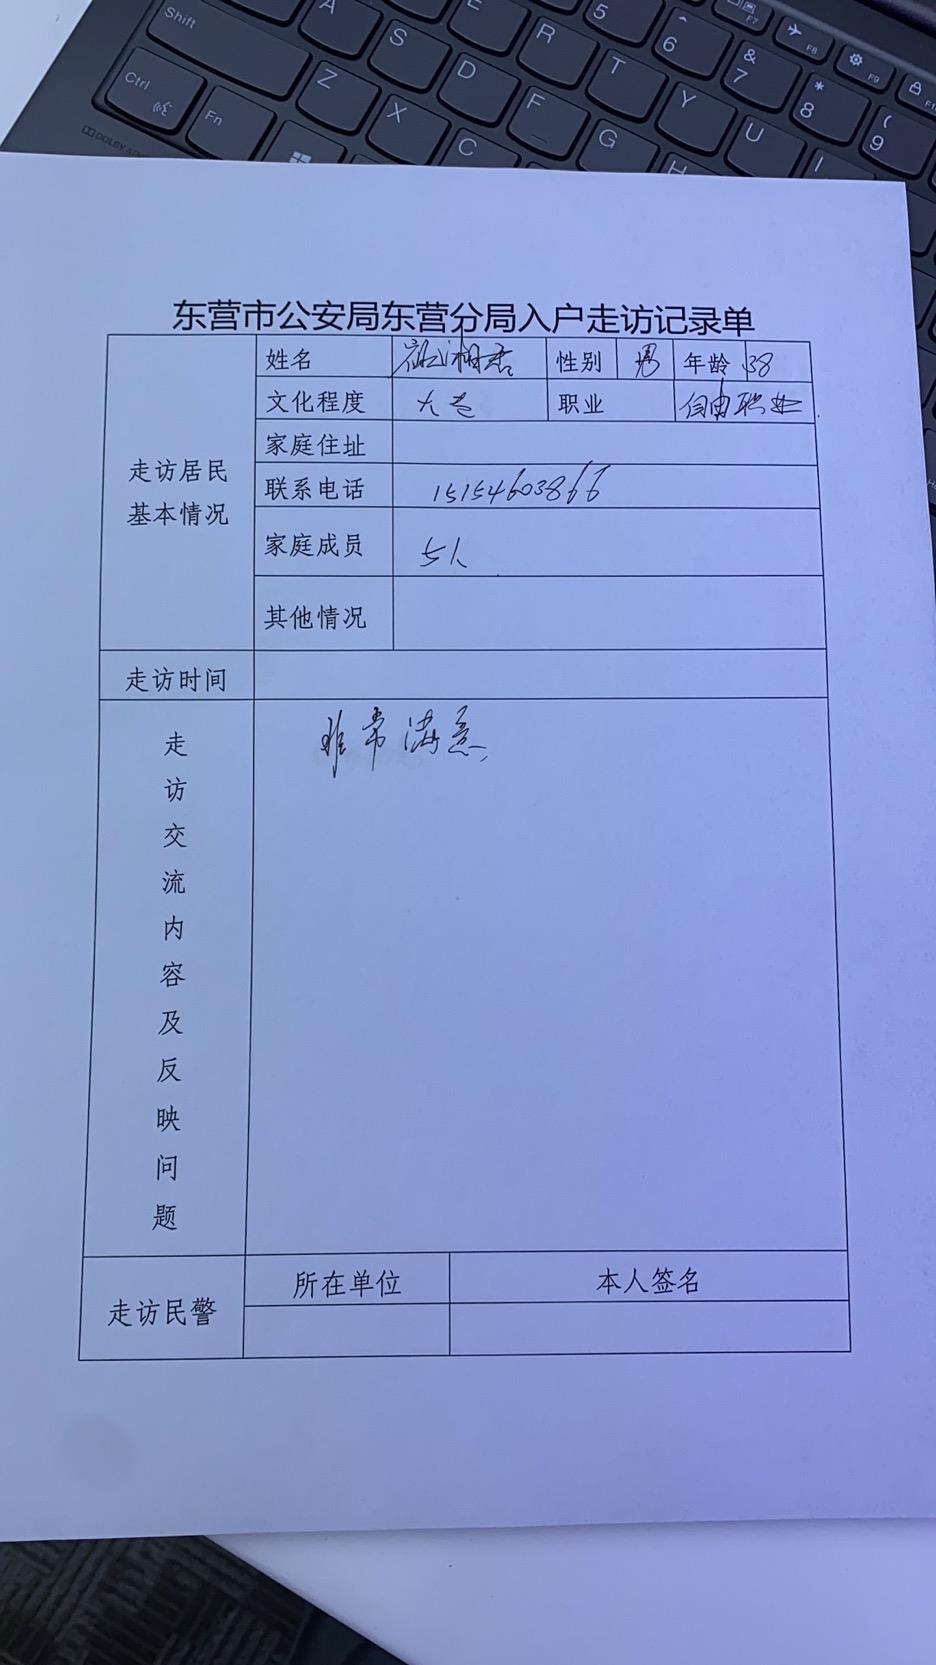 Shift A S E R 5 ^ 6 & 7 * 8 ( 9 F7 F8 F9
Ctrl Fn Z X D C F T G Y H U I
DOLBY
东营市公安局东营分局入户走访记录单
走访居民
基本情况
姓名 性别 男 年龄 38
文化程度 大专 职业 自由职业
家庭住址
联系电话 15154603866
家庭成员 5人
其他情况
走访时间
走访交流内容及反映问题
非常满意
走访民警
所在单位 本人签名